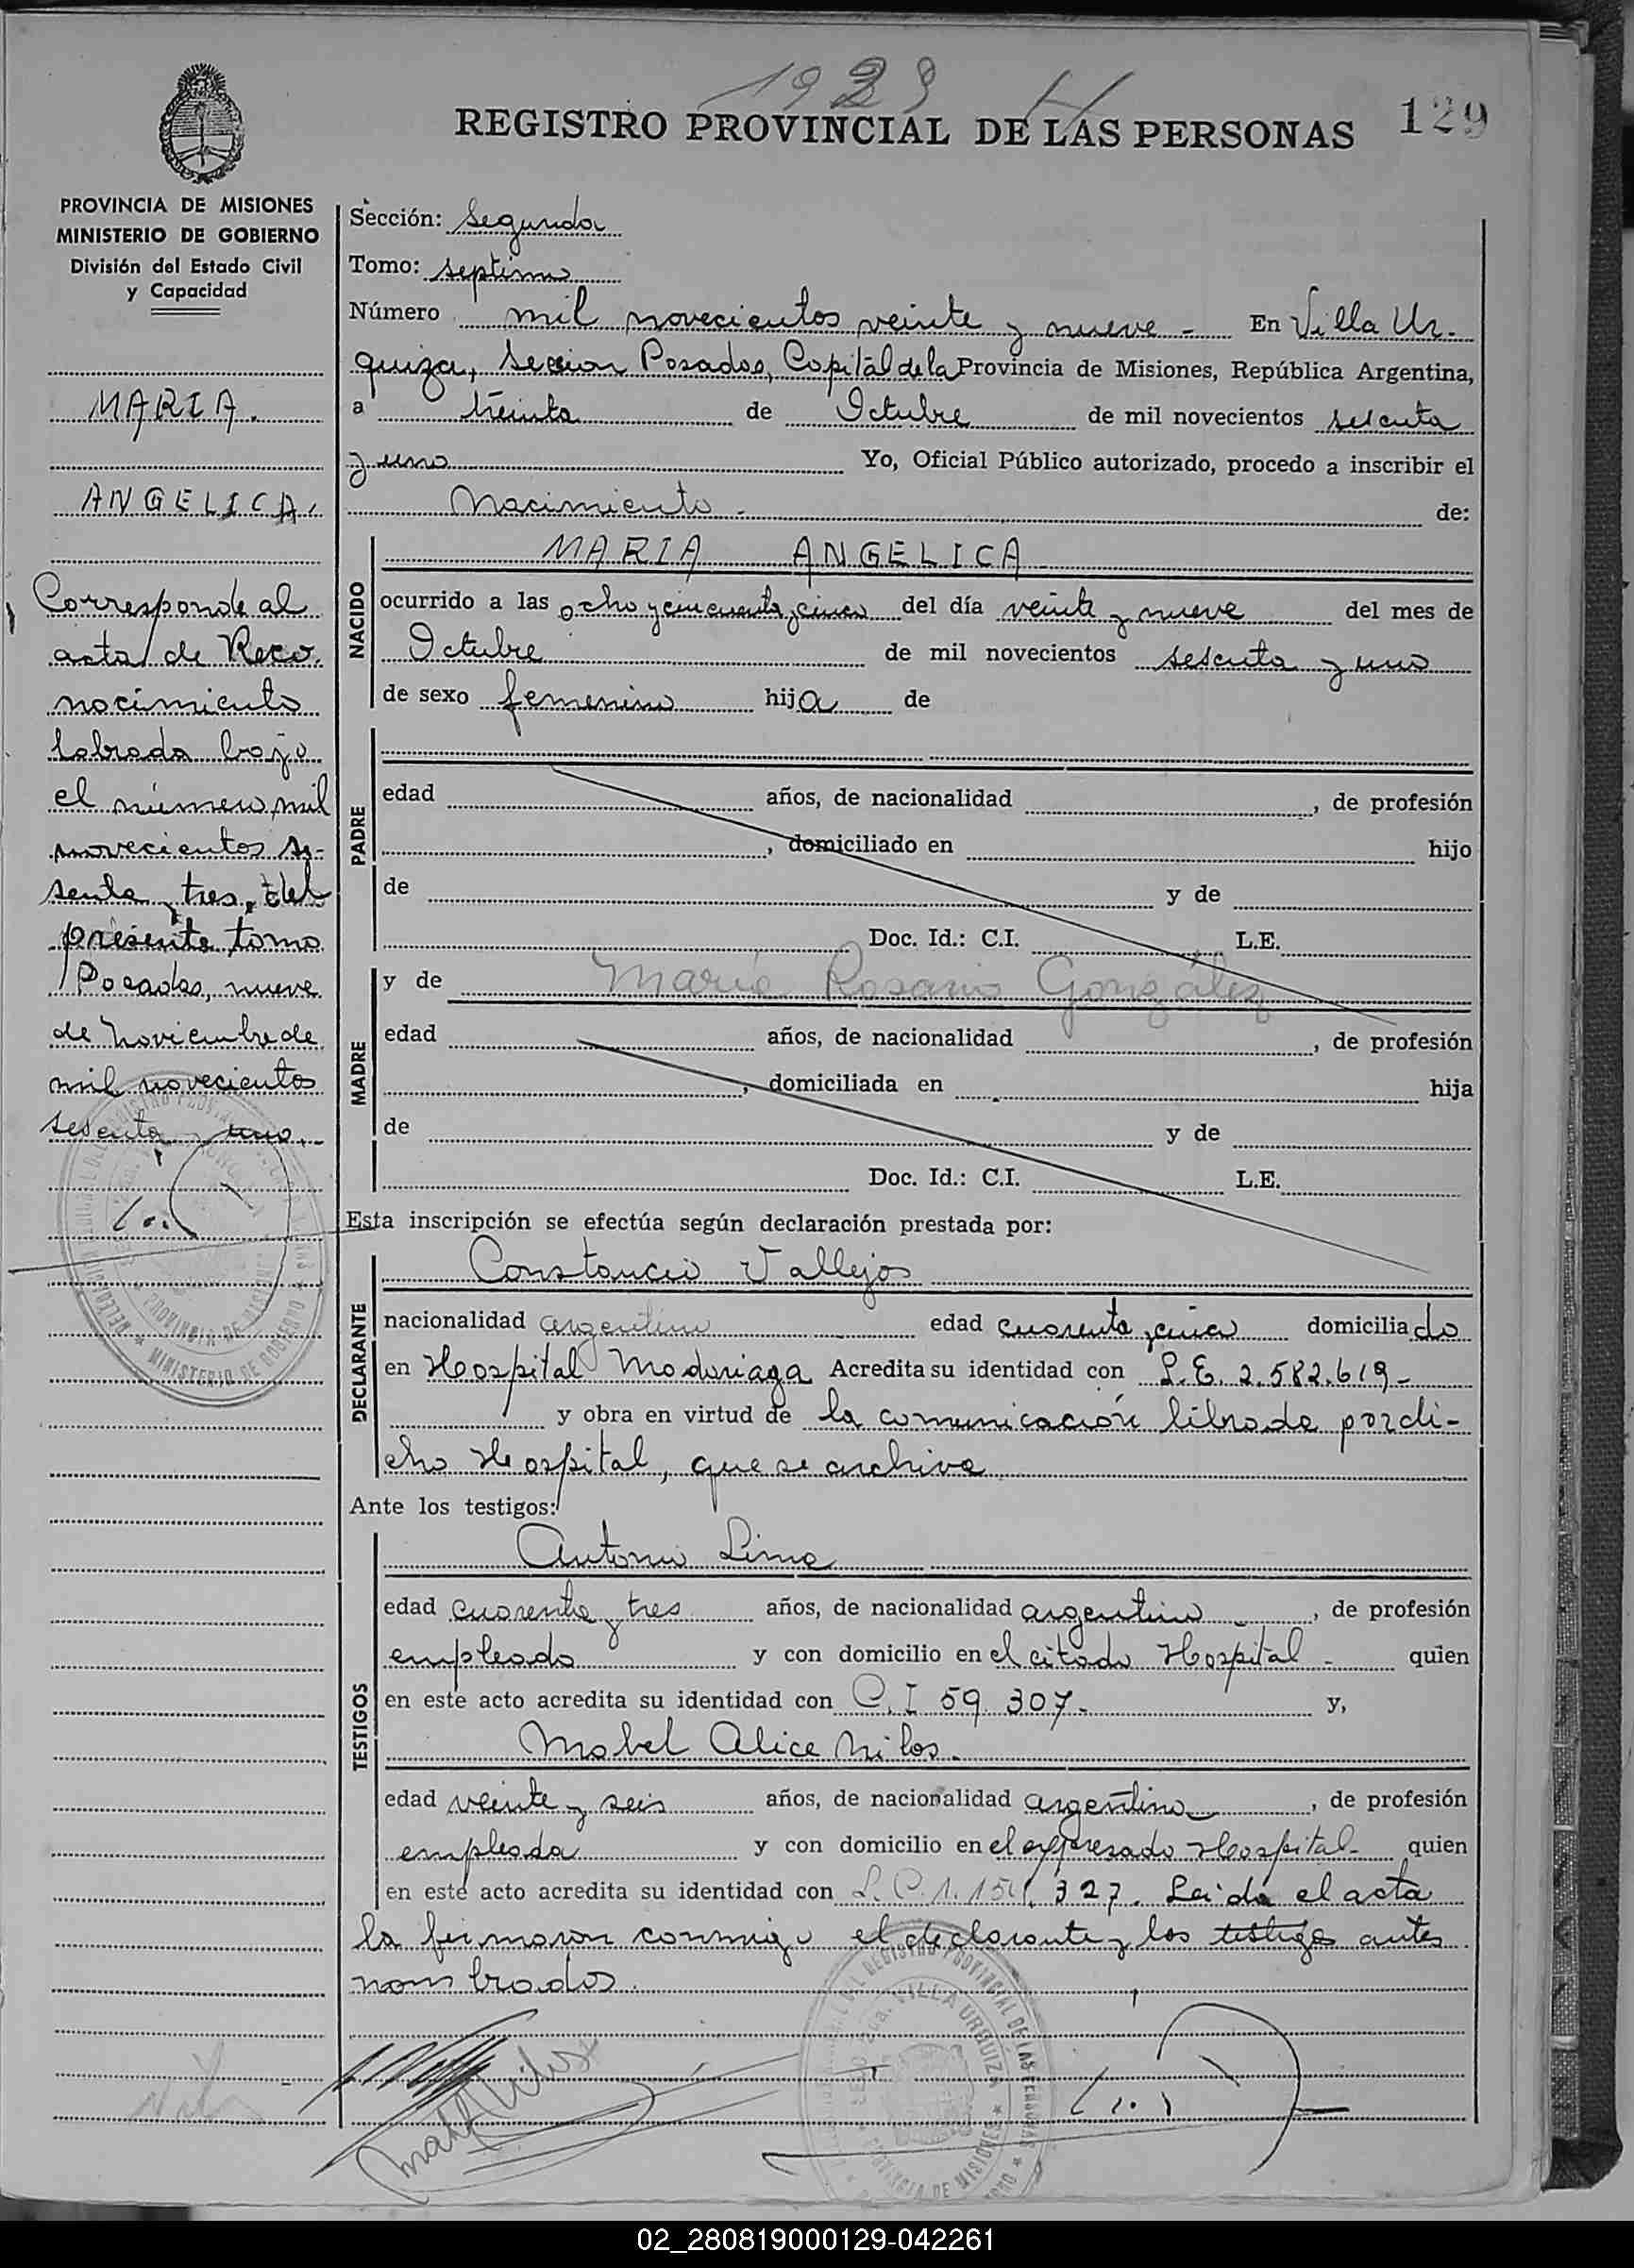 1929 H
REGISTRO PROVINCIAL DE LAS PERSONAS 129
PROVINCIA DE MISIONES
MINISTERIO DE GOBIERNO
División del Estado Civil
y Capacidad
MARIA.
ANGELICA.
Corresponde al
acta de Reco.
nocimiento
labrada bajo
el número mil
novecientos se-
senta y tres, del
presente tomo
Posadas, nueve
de Noviembre de
mil novecientos
sesenta y uno.
Sección: Segunda
Tomo: septimo
Número mil novecientos veinte y nueve - En Villa Ur-
quiza, Seccion Posadas, Capital de la Provincia de Misiones, República Argentina,
a treinta de Octubre de mil novecientos sesenta
y uno Yo, Oficial Público autorizado, procedo a inscribir el
Nacimiento - de:
NACIDO
MARIA ANGELICA
ocurrido a las ocho y cincuenta y cinco del día veinte y nueve del mes de
Octubre de mil novecientos sesenta y uno
de sexo femenino hija de
PADRE
edad años, de nacionalidad , de profesión
, domiciliado en hijo
de y de
Doc. Id.: C.I. L.E.
MADRE
y de María Rosario González
edad años, de nacionalidad , de profesión
, domiciliada en hija
de y de
Doc. Id.: C.I. L.E.
Esta inscripción se efectúa según declaración prestada por:
DECLARANTE
Constancio Vallejos
nacionalidad argentino edad cuarenta y cinco domiciliado
en Hospital Madariaga Acredita su identidad con L.E. 2.582.619-
y obra en virtud de la comunicación librada por di-
cho Hospital, que se archiva
Ante los testigos:
TESTIGOS
Antonio Lima
edad cuarenta y tres años, de nacionalidad argentino - , de profesión
empleado y con domicilio en el citado Hospital - quien
en este acto acredita su identidad con C.I 59.307- y,
Mabel Alice Nilos.
edad veinte y seis años, de nacionalidad argentina , de profesión
empleada y con domicilio en el expresado Hospital- quien
en este acto acredita su identidad con L.C. 327. Leida el acta
la firmaron conmigo el declarante y los testigos antes
nombrados.
VILLA URQUIZA
PROVINCIA DE MISIONES
MINISTERIO DE GOBIERNO
02_280819000129-042261